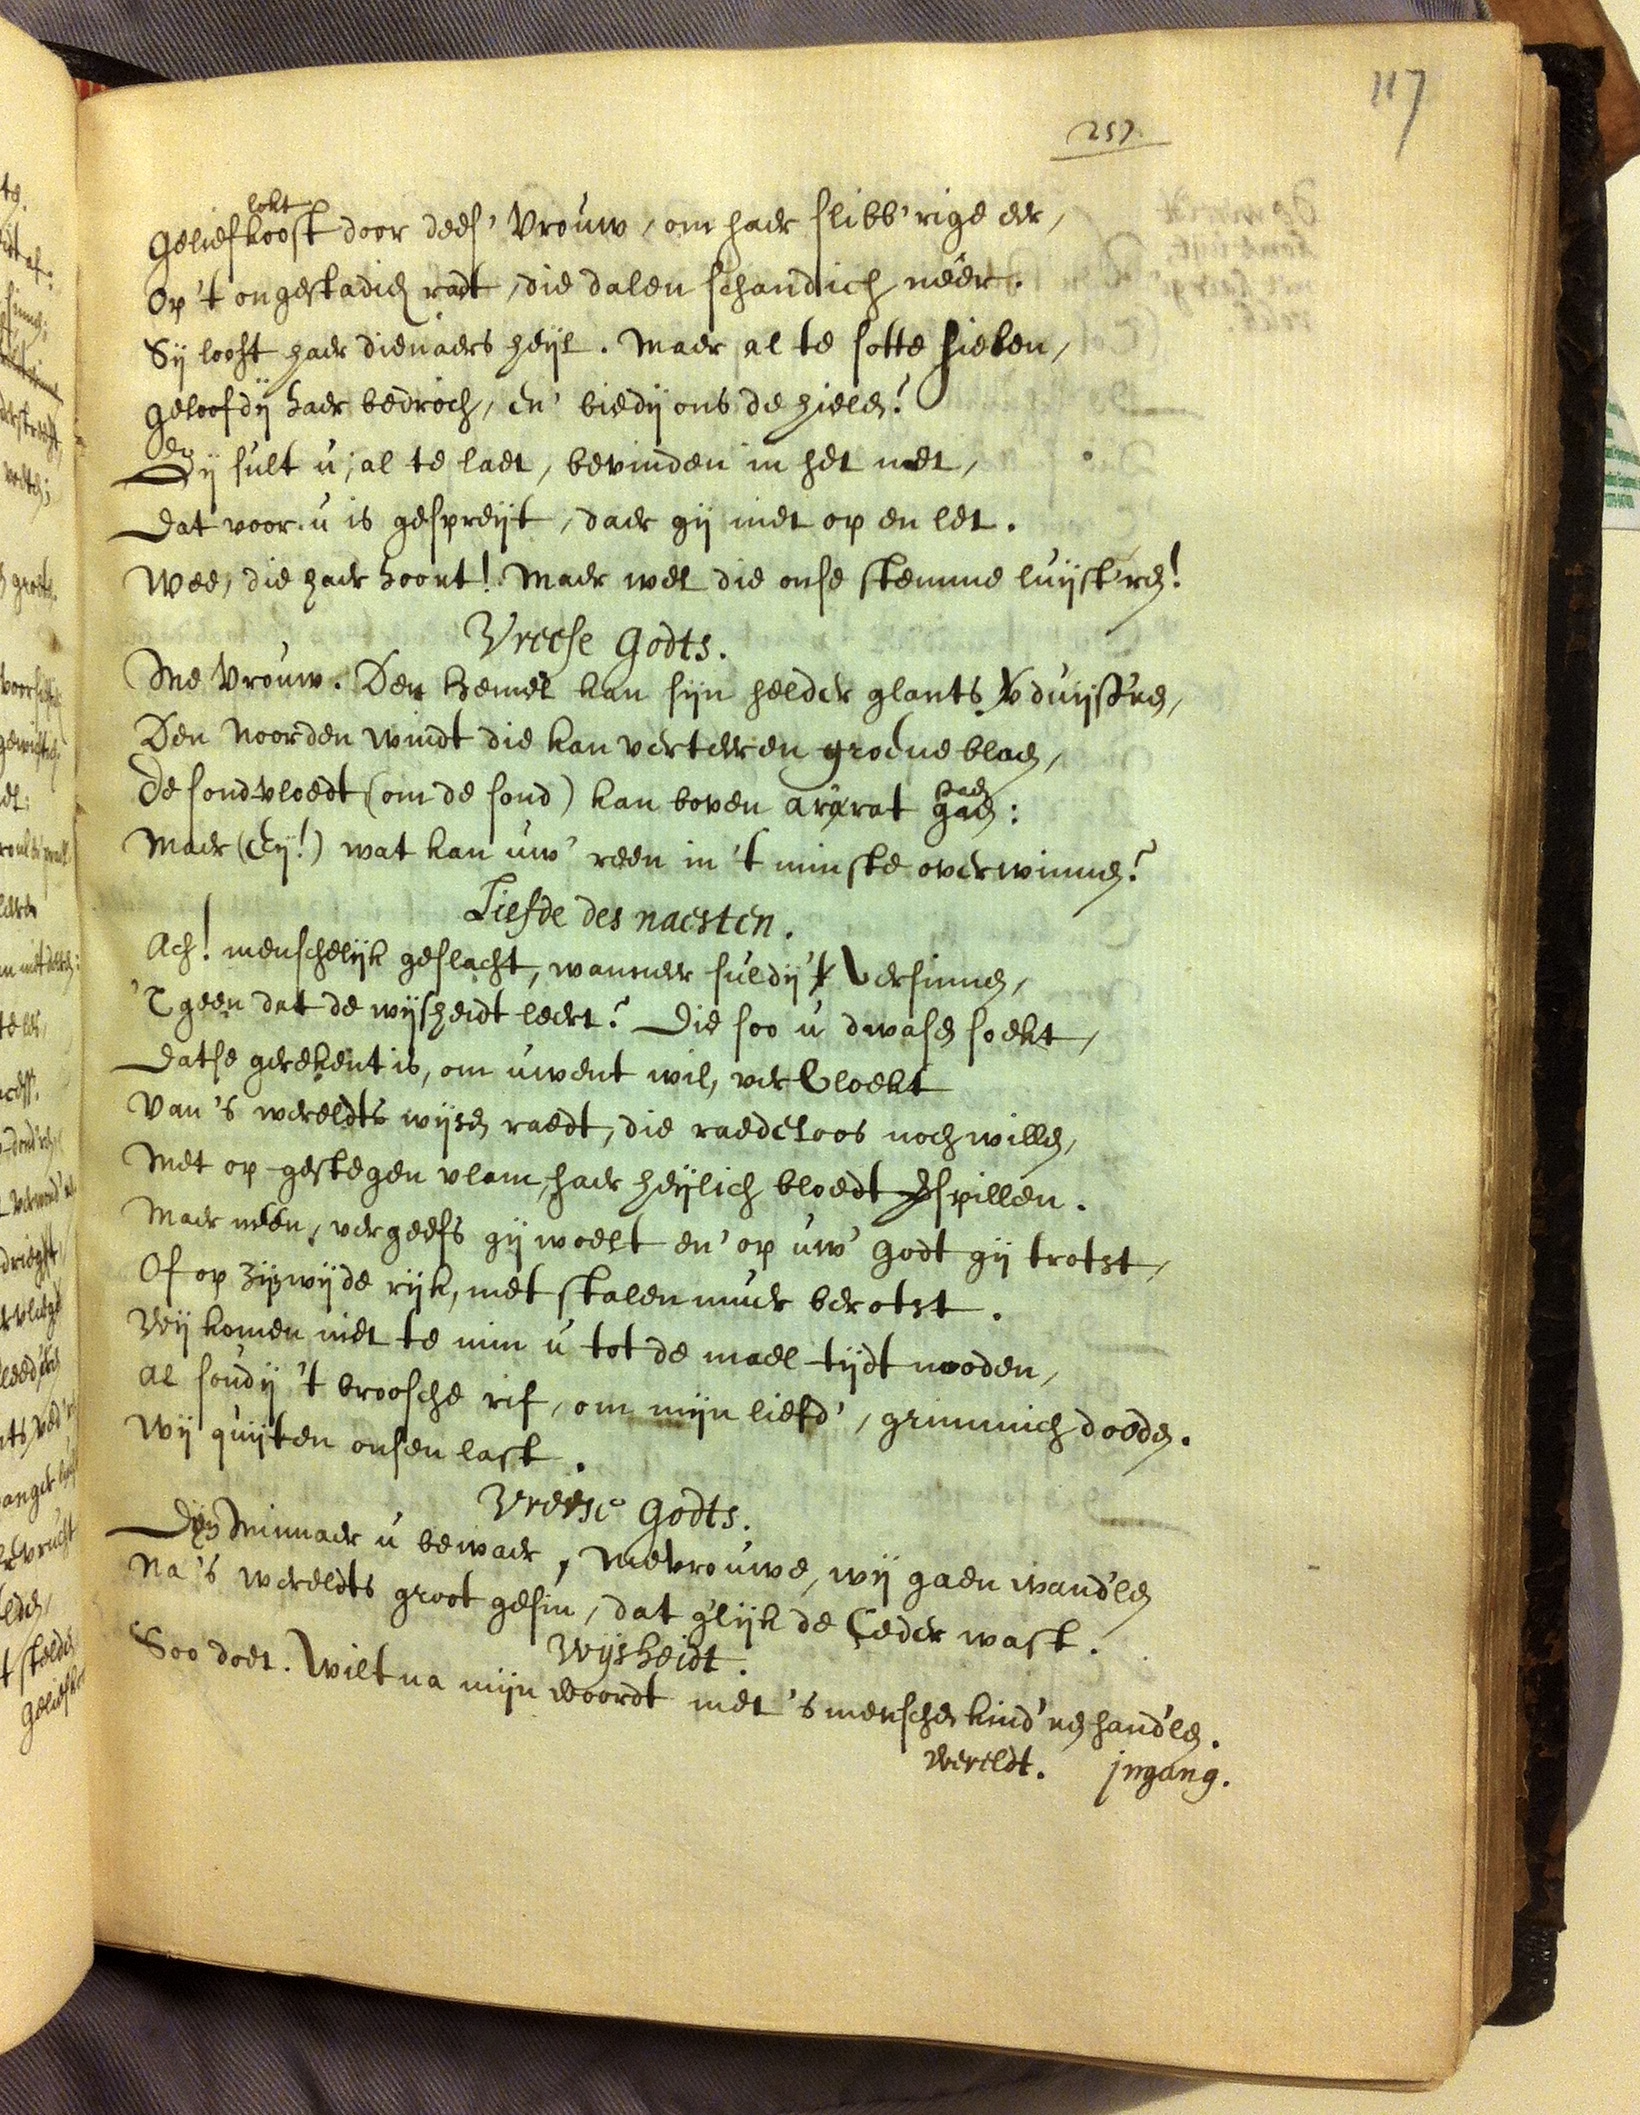 117
257
lokt
Geliefkoost door dees' Vrouw, om haer slibb'rige eer,
Op 't ongestadich radt, die dalen schandich néér.
Sij looft haer dienaers heijl. Maer al te sotte sielen,
Geloofdij haer bedroch, en' biedij ons de hielen?
Gij sult u, al te laet, bevinden in het net,
Dat voor u is gespreijt, daer gij niet op en let.
Wee, die haer hoort! Maer wel die onse stemme luijst'ren!
Vreese Godts.
Me Vrouw. Den hemel kan sijn helder glants verduijst'ren,
Den Noorden windt die kan verteeren groene blaen,
De sondvloedt (om de sond) kan boven ararat
staen
gaen:
Maer (Eij!) wat kan uw' reen in 't minste overwinnen?
Liefde des naesten.
Ach! menschelijk geslacht, wanneer suldij 't versinnen,
'T geen dat de wijsheidt leert? Die soo u dwasen soekt,
Datse gerekent is, om uwent wil, vervloekt
Van 's wereldts wijsen raedt, die raedeloos noch willen,
Met op-gestegen vlam, haer heijlich bloedt spillen.
Maer neen, vergeefs gij woelt en' op uw' Godt gij trotst,
Of op zijn wijde rijk, met stalen muer berotst.
Wij komen niet te min u tot de mael-tijdt nooden,
Al soudij 't broosche rif, om mijn liefd', grimmich dooden.
Wij quijten onsen last.
Vreese Godts.
Dijn Minnaer u bewaer, Mevrouwe, wij gaen wand'len
Na 's wereldts groot gesin, dat g'lijk de Ceder wast.
Wijsheidt.
Soo doet. Wilt na mijn woordt met 's menschen kind'ren hand'len.
Wereldt. jngang.